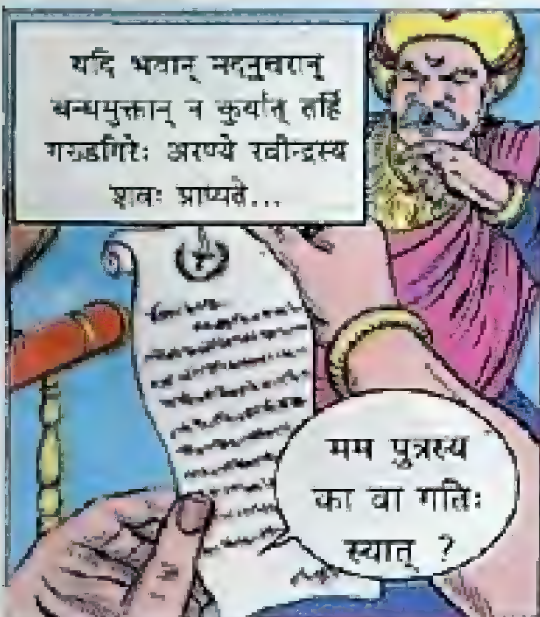 यदि भवान् मदनुचरान्
बन्धमुक्तान् न कुर्यात् तर्हि
गरुडगिरेः अरण्ये रवीन्द्रस्य
शवः प्राप्यते...
मम पुत्रस्य
का वा गतिः
स्यात् ?